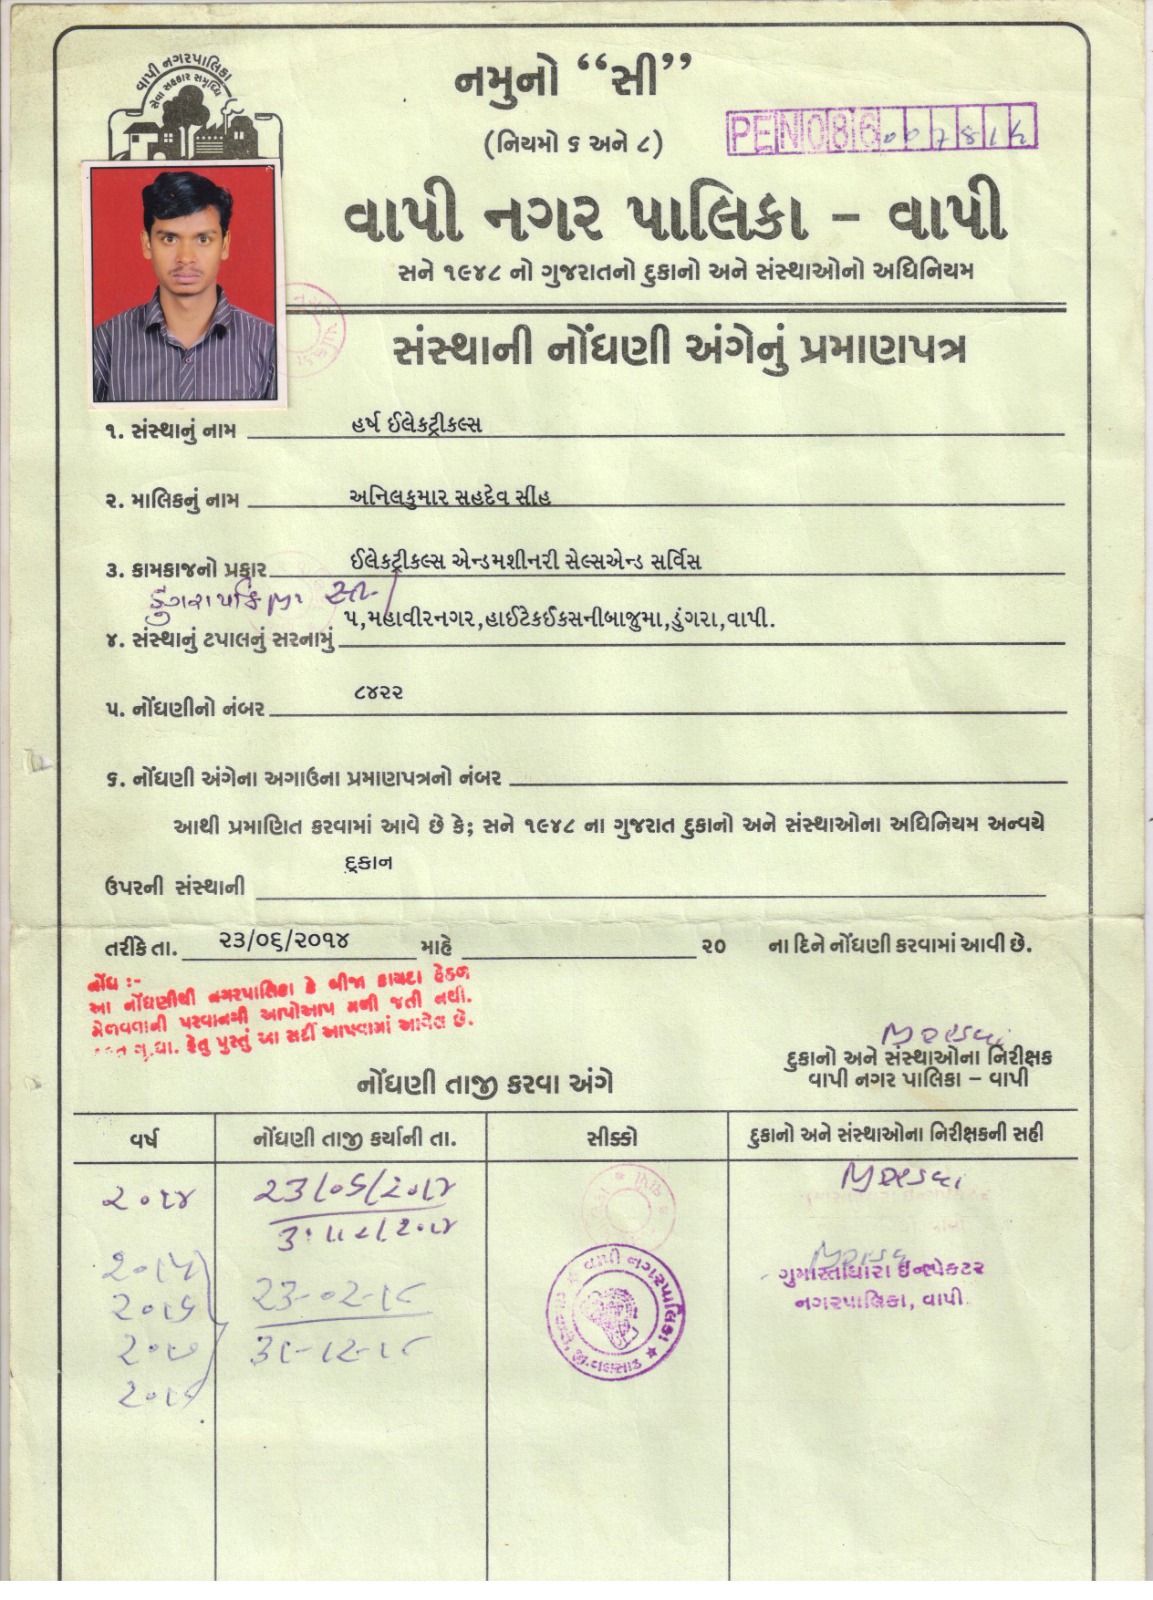 વાપી નગરપાલિકા
સેવા સહકાર સમૃધ્ધિ
નમુનો “સી”
(નિયમો ૬ અને ૮)
PEN086
વાપી નગર પાલિકા – વાપી
સને ૧૯૪૮ નો ગુજરાતનો દુકાનો અને સંસ્થાઓનો અધિનિયમ
સંસ્થાની નોંધણી અંગેનું પ્રમાણપત્ર
૧. સંસ્થાનું નામ હર્ષ ઈલેકટ્રીકલ્સ
૨. માલિકનું નામ અનિલકુમાર સહદેવ સીંહ
૩. કામકાજનો પ્રકાર ઈલેકટ્રીકલ્સ એન્ડમશીનરી સેલ્સએન્ડ સર્વિસ
૪. સંસ્થાનું ટપાલનું સરનામું ૫,મહાવીરનગર,હાઈટેકઈકસનીબાજુમા,ડુંગરા,વાપી.
૫. નોંધણીનો નંબર ૮૪૨૨
૬. નોંધણી અંગેના અગાઉના પ્રમાણપત્રનો નંબર
આથી પ્રમાણિત કરવામાં આવે છે કે; સને ૧૯૪૮ ના ગુજરાત દુકાનો અને સંસ્થાઓના અધિનિયમ અન્વયે
ઉપરની સંસ્થાની દુકાન
તરીકે તા. ૨૩/૦૬/૨૦૧૪ માહે ૨૦ ના દિને નોંધણી કરવામાં આવી છે.
નોંધ :-
આ નોંધણીથી નગરપાલિકા કે બીજા કાયદા હેઠળ
મેળવવાની પરવાનગી આપોઆપ મળી જતી નથી.
ગુ.ધા. હેતુ પુરતું આ સર્ટી આપવામાં આવેલ છે.
દુકાનો અને સંસ્થાઓના નિરીક્ષક
વાપી નગર પાલિકા – વાપી
નોંધણી તાજી કરવા અંગે
વર્ષ નોંધણી તાજી કર્યાની તા. સીક્કો દુકાનો અને સંસ્થાઓના નિરીક્ષકની સહી
૨૦૧૪ ૨૩/૦૬/૨૦૧૪
૩૧/૧૨/૨૦૧૪
૨૦૧૫
૨૦૧૬ ૨૩-૦૨-૧૮
૨૦૧૭ ૩૧-૧૨-૧૮
૨૦૧૮
વાપી નગરપાલિકા
ગુમાસ્તાધારા ઈન્સ્પેકટર
નગરપાલિકા, વાપી.